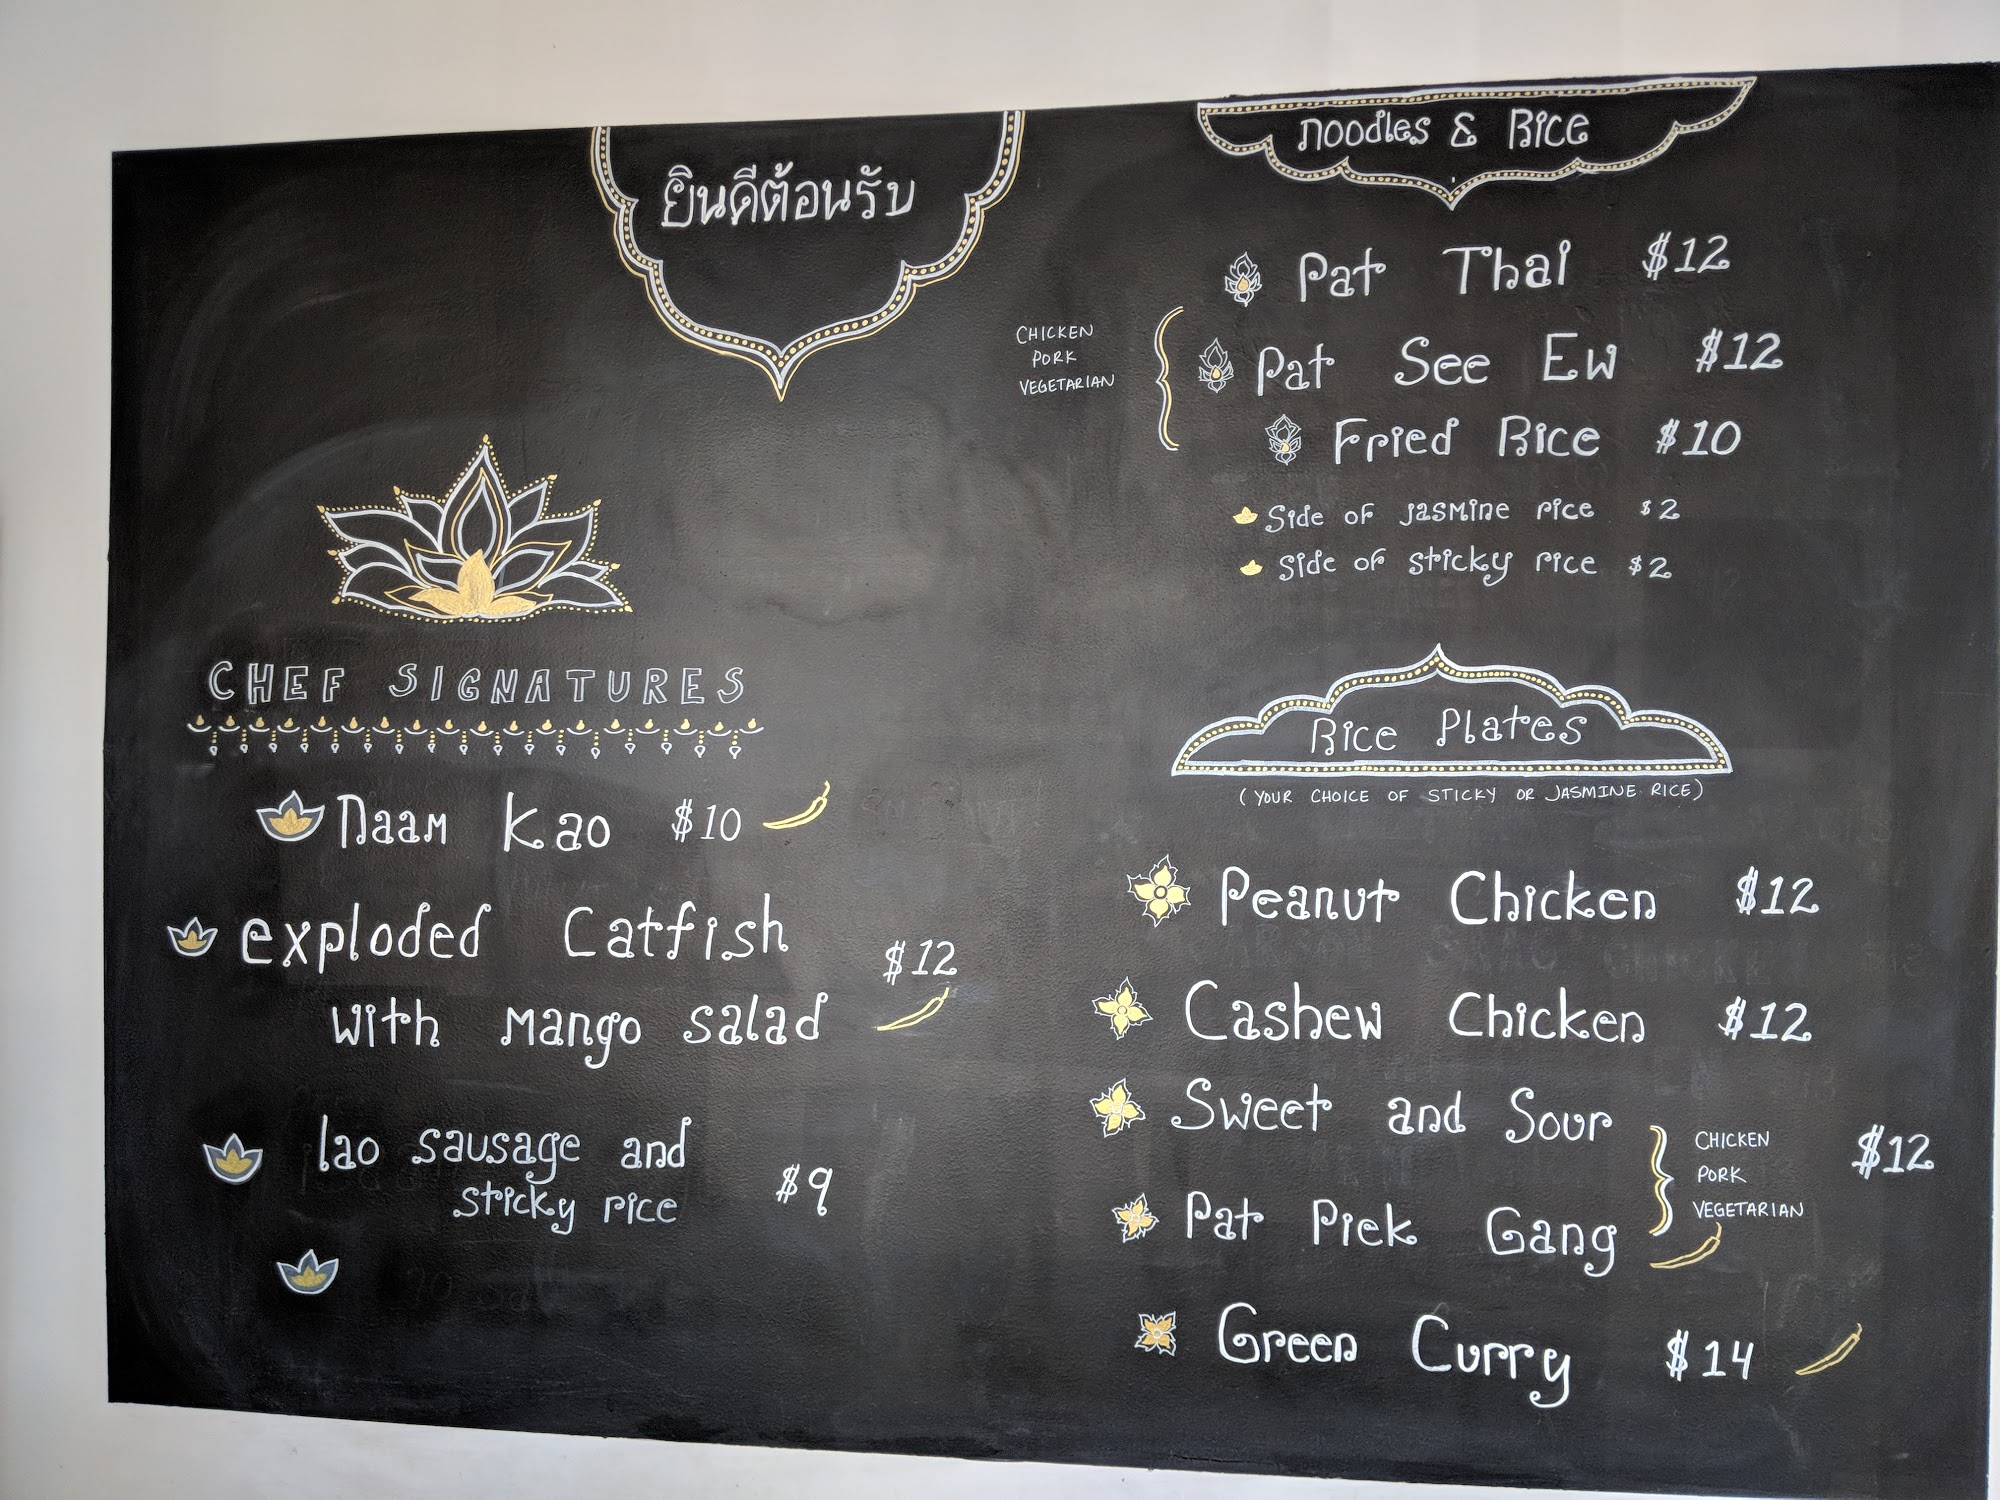 ยินดีต้อนรับ
CHEF SIGNATURES
Naam Kao $10
exploded Catfish
with mango salad $12
lao sausage and
sticky rice $9
Noodles & Rice
Pat Thai $12
CHICKEN
PORK
VEGETARIAN
Pat See Ew $12
Fried Rice $10
Side of jasmine rice $2
Side of sticky rice $2
Rice Plates
(YOUR CHOICE OF STICKY OR JASMINE RICE)
Peanut Chicken $12
Cashew Chicken $12
Sweet and Sour
Pat Piek Gang
CHICKEN
PORK
VEGETARIAN
$12
Green Curry $14